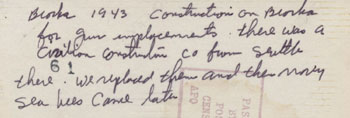 Biorka 1943 Construction on Biorka
for gun emplacements. there was a
Civilian construction co from Seattle
61
there. we replaced them and the navy
sea bees came later
PAS
BY
FO
CENS
APO